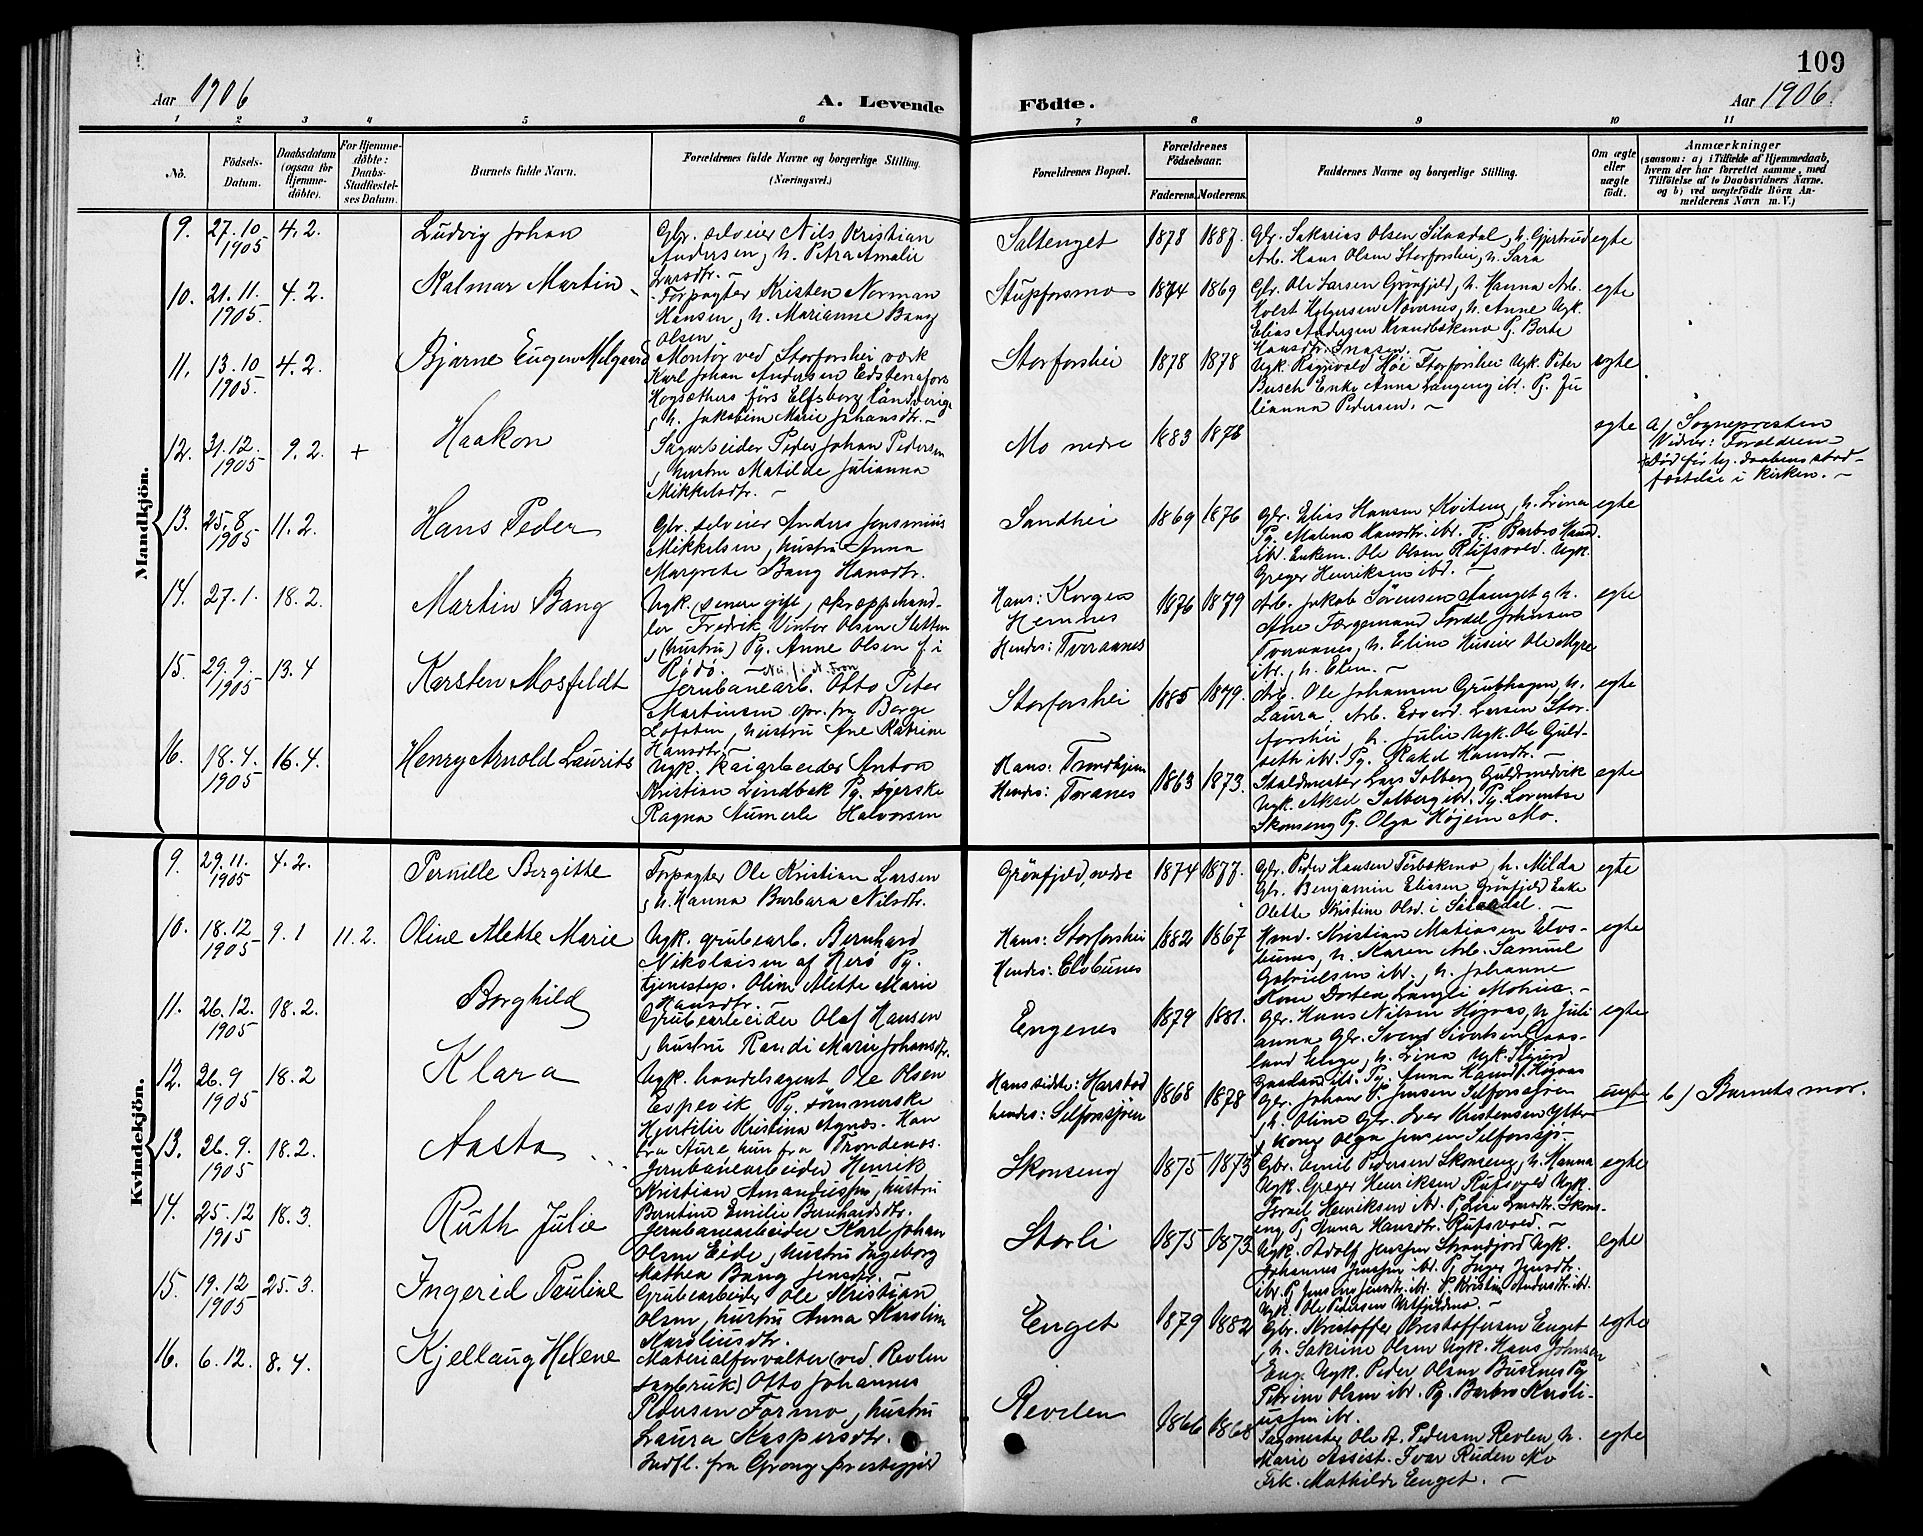 109
Aar 1906
A. Levende
Födte.
Aar 1906.
1 2 3 4 5 6 7 8 9 10 11
No.
Födsels-
Datum.
Daabsdatum
(ogsaa for
Hjemme-
döbte).
For Hjemme-
döbte:
Daabs-
Stadfæstel-
ses Datum.
Barnets fulde Navn.
Forældrenes fulde Navne og borgerlige Stilling.
(Næringsvei.)
Forældrenes Bopæl.
Forældrenes
Födselsaar.
Faderens. Moderens.
Faddernes Navne og borgerlige Stilling.
Om ægte
eller
uægte
födt.
Anmærkninger
(saasom: a) i Tilfælde af Hjemmedaab,
hvem der har forrettet samme, med
Tilföielse af to Daabsvidners Navne,
og b) ved uægtefödte Börn An-
melderens Navn m. V.)
Mandkjön.
9. 27.10 1905 4.2. Ludvig Johan
Gbr. selveier Nils Kristian
Andersen, h. Petra Amalie
Larsdtr. -
Saltenget 1878 1887.
Gbr. Sakarias Olsen h. Gjertrud
Arb. Hans Olsen Storforshei, h. Sara
egte
10. 21.11. 1905. 4.2. Halmar Martin
Forpagter Kristen Norman
Hansen, h. Marianne Bang
Olsen
Stupforsmo 1874 1869
Gbr. Ole Larsen Grönfjeld, h. Hanna Arb.
Holst Helgersen h. Anne Ugk.
Elias Andersen Pg. Berte
Hansdtr.
egte
11. 13.10 1905. 4.2. Bjarne Eugen Melgaard
Montör ved Storforshei værk
Karl Johan Andersen
h. Jakobine Marie Johansdtr. -
Storforshei 1878 1878
Ugk. Ragnvald Høe Storforshei Ugk. Peter
Busch Enke Anna Langeng ibr. Pg. Ju
lianna Pedersen. -
egte
12. 31.12. 1905 9.2. + Haakon
Sagarbeider Peder Johan Pedersen
, hustru Matilde Julianna
Mikkelsdtr. -
Mo nedre 1883 1878
egte
a) Sognepresten
Vidner: Forældrene
Død før daabens stad-
fæstelse i kirken. -
13. 25.8 1905 11.2. Hans Peder
Gbr. selveier Anders Jensenius
Mikkelsen, hustru Anna
Margrete Bang Hansdtr.
Sandhei 1869 1876
Gbr. Elias Hansen Kviteng, h. Lina
Pg. Malena Hansdtr. ibr. Pg. Barbro Hansd.
ibr. Enkem. Ole Olsen Rufsvold. Ugk.
Greger Henriksen ibd. -
egte
14. 27.1. 18.2. Martin Bang
Ugk. (senere gift, skræppehand-
ler Fredrik Vinter Olsen Sletten
, (hustru) Pg. Anne Olsen f. i
Rødø. -
Hans: Korgen
Hemnes
Hendes: Tveraanes
1876 1879
Arb. Jakob Sørensen h.
Ane Færgemand Fordel Johnsen
Tveraanes, h. Eline Huseier Ole Myre
ibr, h. Elen. -
egte
15. 29.9. 1905 13.4 Karsten Mosfeldt
Jernbanearb. Otto Peter
Martinsen opr. fra Borge
Lofoten, hustru Ane Katrine
Hansdtr. -
Storforshei 1885 1879.
Arb. Ole Johansen Grubhagen, h.
Laura. Arb. Edvard Larsen Stor-
forshei h. Julie Ugk. Ole Guld-
seth ibr. Pg. Rakel Hansdtr. -
egte
16. 18.4. 1905 16.4. Henry Arnold Laurits
Ugk. kaiarbeider Anton
Kristian Lindbæk Pg. syerske
Ragna Numerle Halvorsen
Hans: Trondhjem
Hendes: Toranes
1863 1873.
Staldmester Lars Solberg Guldsmedvik
Ugk. Aksel Solberg ibr. Pg. Lorentse
Skonseng Pg. Olga Højem Mo.
egte
Kvindekjön.
9. 29.11. 1905 4.2. Pernille Bergitte
Forpagter Ole Kristian Larsen
, h. Hanna Barbara Nilsdtr.
Grönfjeld, nedre 1874 1877.
Gbr. Peder Hansen h. Milda
Gbr. Benjamin Eliasen Grönfjeld Enke
Olette Kristine Olsd. i -
egte
10. 18.12 1905 9.1 11.2. Oline Alette Marie
Ugk. grubearb. Bernhard
Nikolaisen af Herø Pg.
tjenestep. Oline Alette Marie
Hansdtr. -
Hans: Storforshei
Hendes: Elvbunes
1882 1867
Hmd. Kristian Matiasen Elvs-
bunes, h. Karen Arb. Samuel
Gabrielsen ibr. h. Johanne
Kone Dorten Langli Mohus. -
egte
11. 26.12. 1905 18.2. Borghild
Grubearbeider Olaf Hansen
, hustru Randi Marie Johansdtr.
Engenes 1879 1881.
Gbr. Hans Nilsen Høgaas, h. Juli
anna Gbr. Svend Sivertsen Gaas-
land Enge, h. Lina Ugk. Sigurd
Gaasland ib. Pg. Anna Hansd. Høgaas
egte
12. 26.9 1905 18.2 Klara
Ugk. handelsagent Ole Olsen
Evpevik Pg. sömmerske
Hjertilie Kristina Agnes. Han
fra Aure hun fra Trondenes.
Hans sidste: Harstad
hendes: Selforssjøen
1868 1878
Gbr. Johan P. Jensen Selforssjøen
, h. Oline Gbr. Iver Kristensen Ytter
, Kone Olga Jensen Selforssjø -
uegte
b) Barnets mor.
13. 26.9. 1905 18.2. Aasta
Jernbanearbeider Henrik
Kristian Amandussen, hustru
Berntine Emilie Bernhardsdtr.
Skonseng 1875 1873
Gbr. Emil Pedersen Skonseng, h. Hanna
Ugk. Greger Henriksen Rufsvold Ugk.
Henriksen ibr. P. Skons-
eng P. Anna Hansdtr. Rufsvold. -
egte
14. 25.12 1905 18.3. Ruth Julie
Jernbanearbeider Karl Johan
Olsen Eide, hustru Ingeborg
Mathea Bang Jensdtr.
Storli 1875 1873
Ugk. Adolf Jensen Strandjord Ugk.
Johannes Jensen ibr. P. Inger Jensdtr.
ibr. P. Jensdtr. ibr. P. Kristine Andersdtr. ibr.
Ugk. Ole Pedersen -
egte
15. 19.12 1905 25.3. Ingerid Pauline
Grubearbeider Ole Kristian
Olsen, hustru Anna Karoline
Karoliusdtr.
Enget 1879 1882
Gbr. Kristoffer Kristoffersen Enget
, h. Sakrine Olsen Ugk. Hans Johnsen
Eng. Ugk. Peder Olsen Busenes Pg
Petrine Olsen ibr. Pg. Barbro Karoli-
ussen ibr.
egte
16. 6.12. 8.4. Kjellaug Helene
Materialforvalter (ved Revlen
sagbruk) Otto Johannes
Paulsen Formo, hustru
Laura Kaspersdtr.
Indfl. fra Grong prestegjeld
Revlen 1866 1868
Sagmester Ole A. Pedersen Revlen h.
Marie Assist. Ivar Ruden Mo
Frk. Mathilde Enget. -
egte